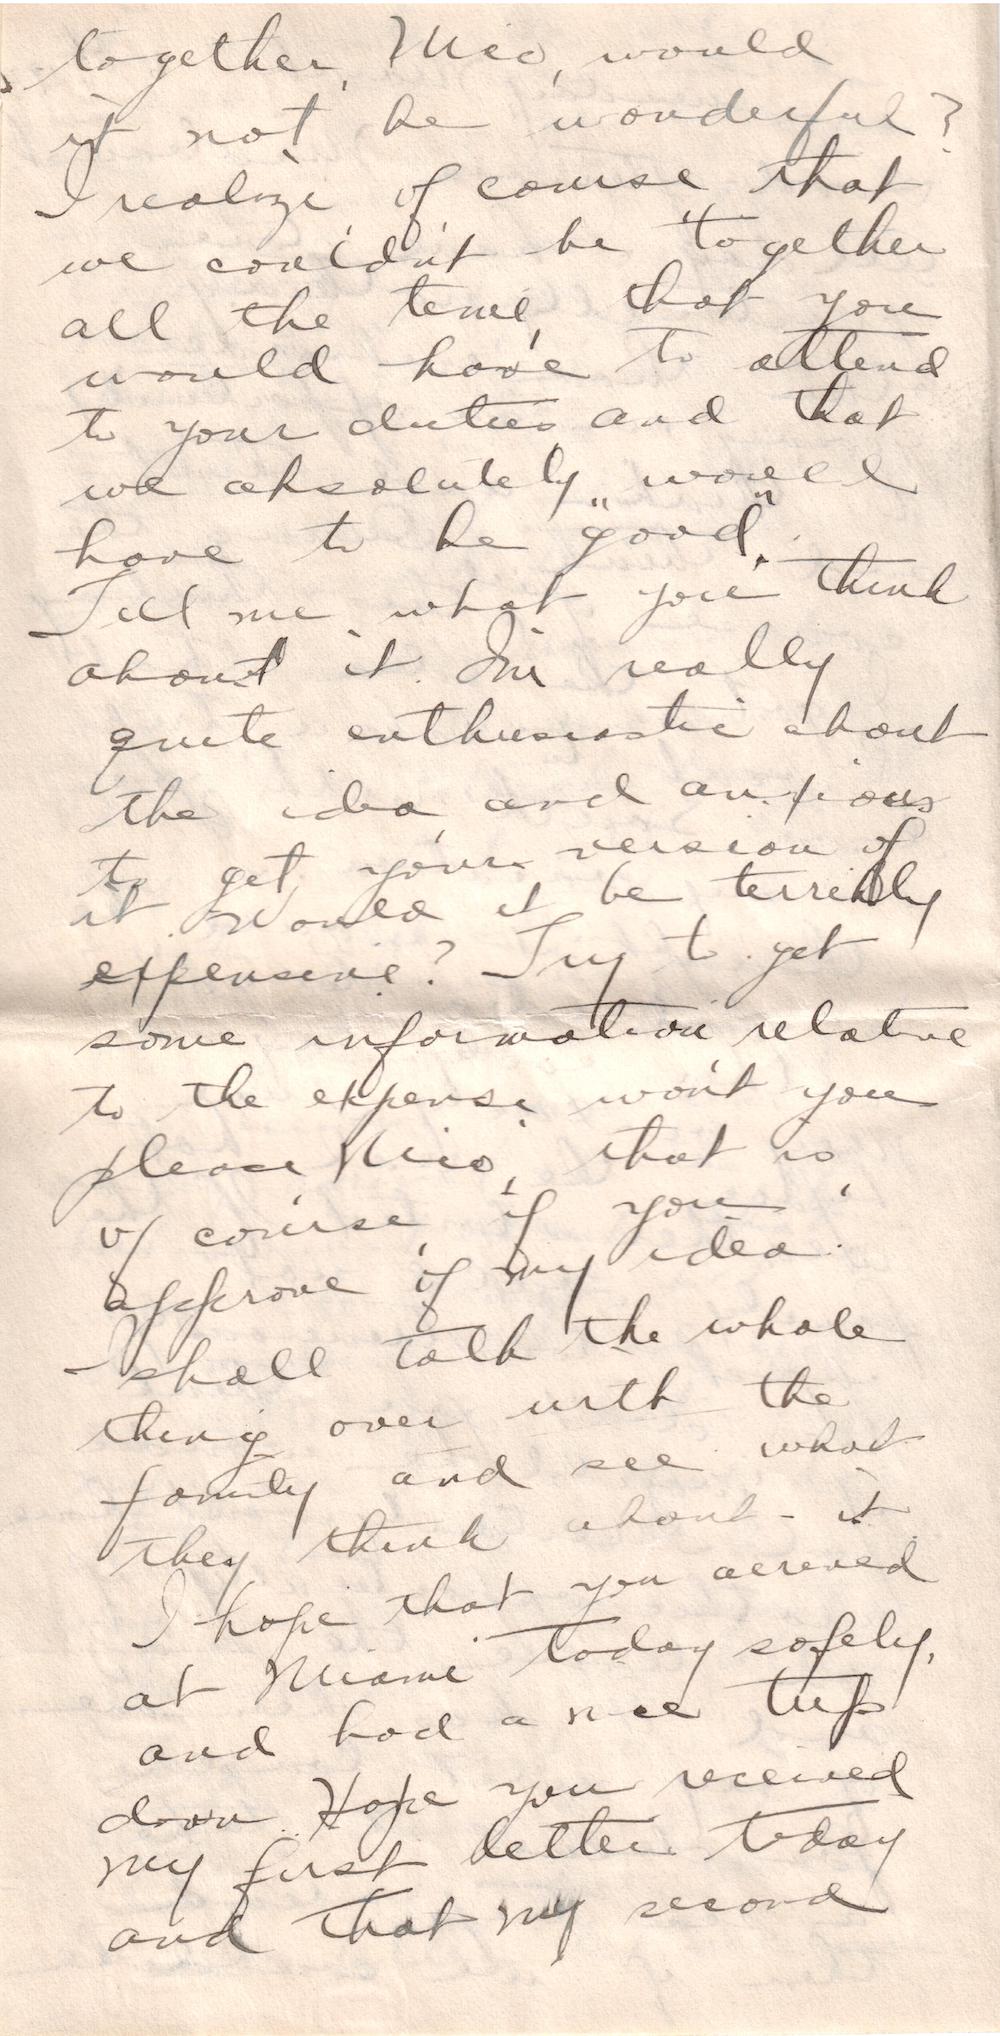 together, Mico, would
it not be wonderful?
I realize of course that
we couldn't be together
all the time, that you
would have to attend
to your duties and that
we absolutely would
have to be "good".
Tell me what you think
about it. I'm really
quite enthusiastic about
the idea, and anxious
to get your version of
it. Would it be terribly
expensive? Try to get
some information relative
to the expense won't you
please Mico, that is
of course, if you
approve of my idea.
I shall talk the whole
thing over with the
family and see what
they think about - it.
I hope that you arrived
at Miami today safely,
and had a nice trip
down. Hope you received
my first letter today
and that my second